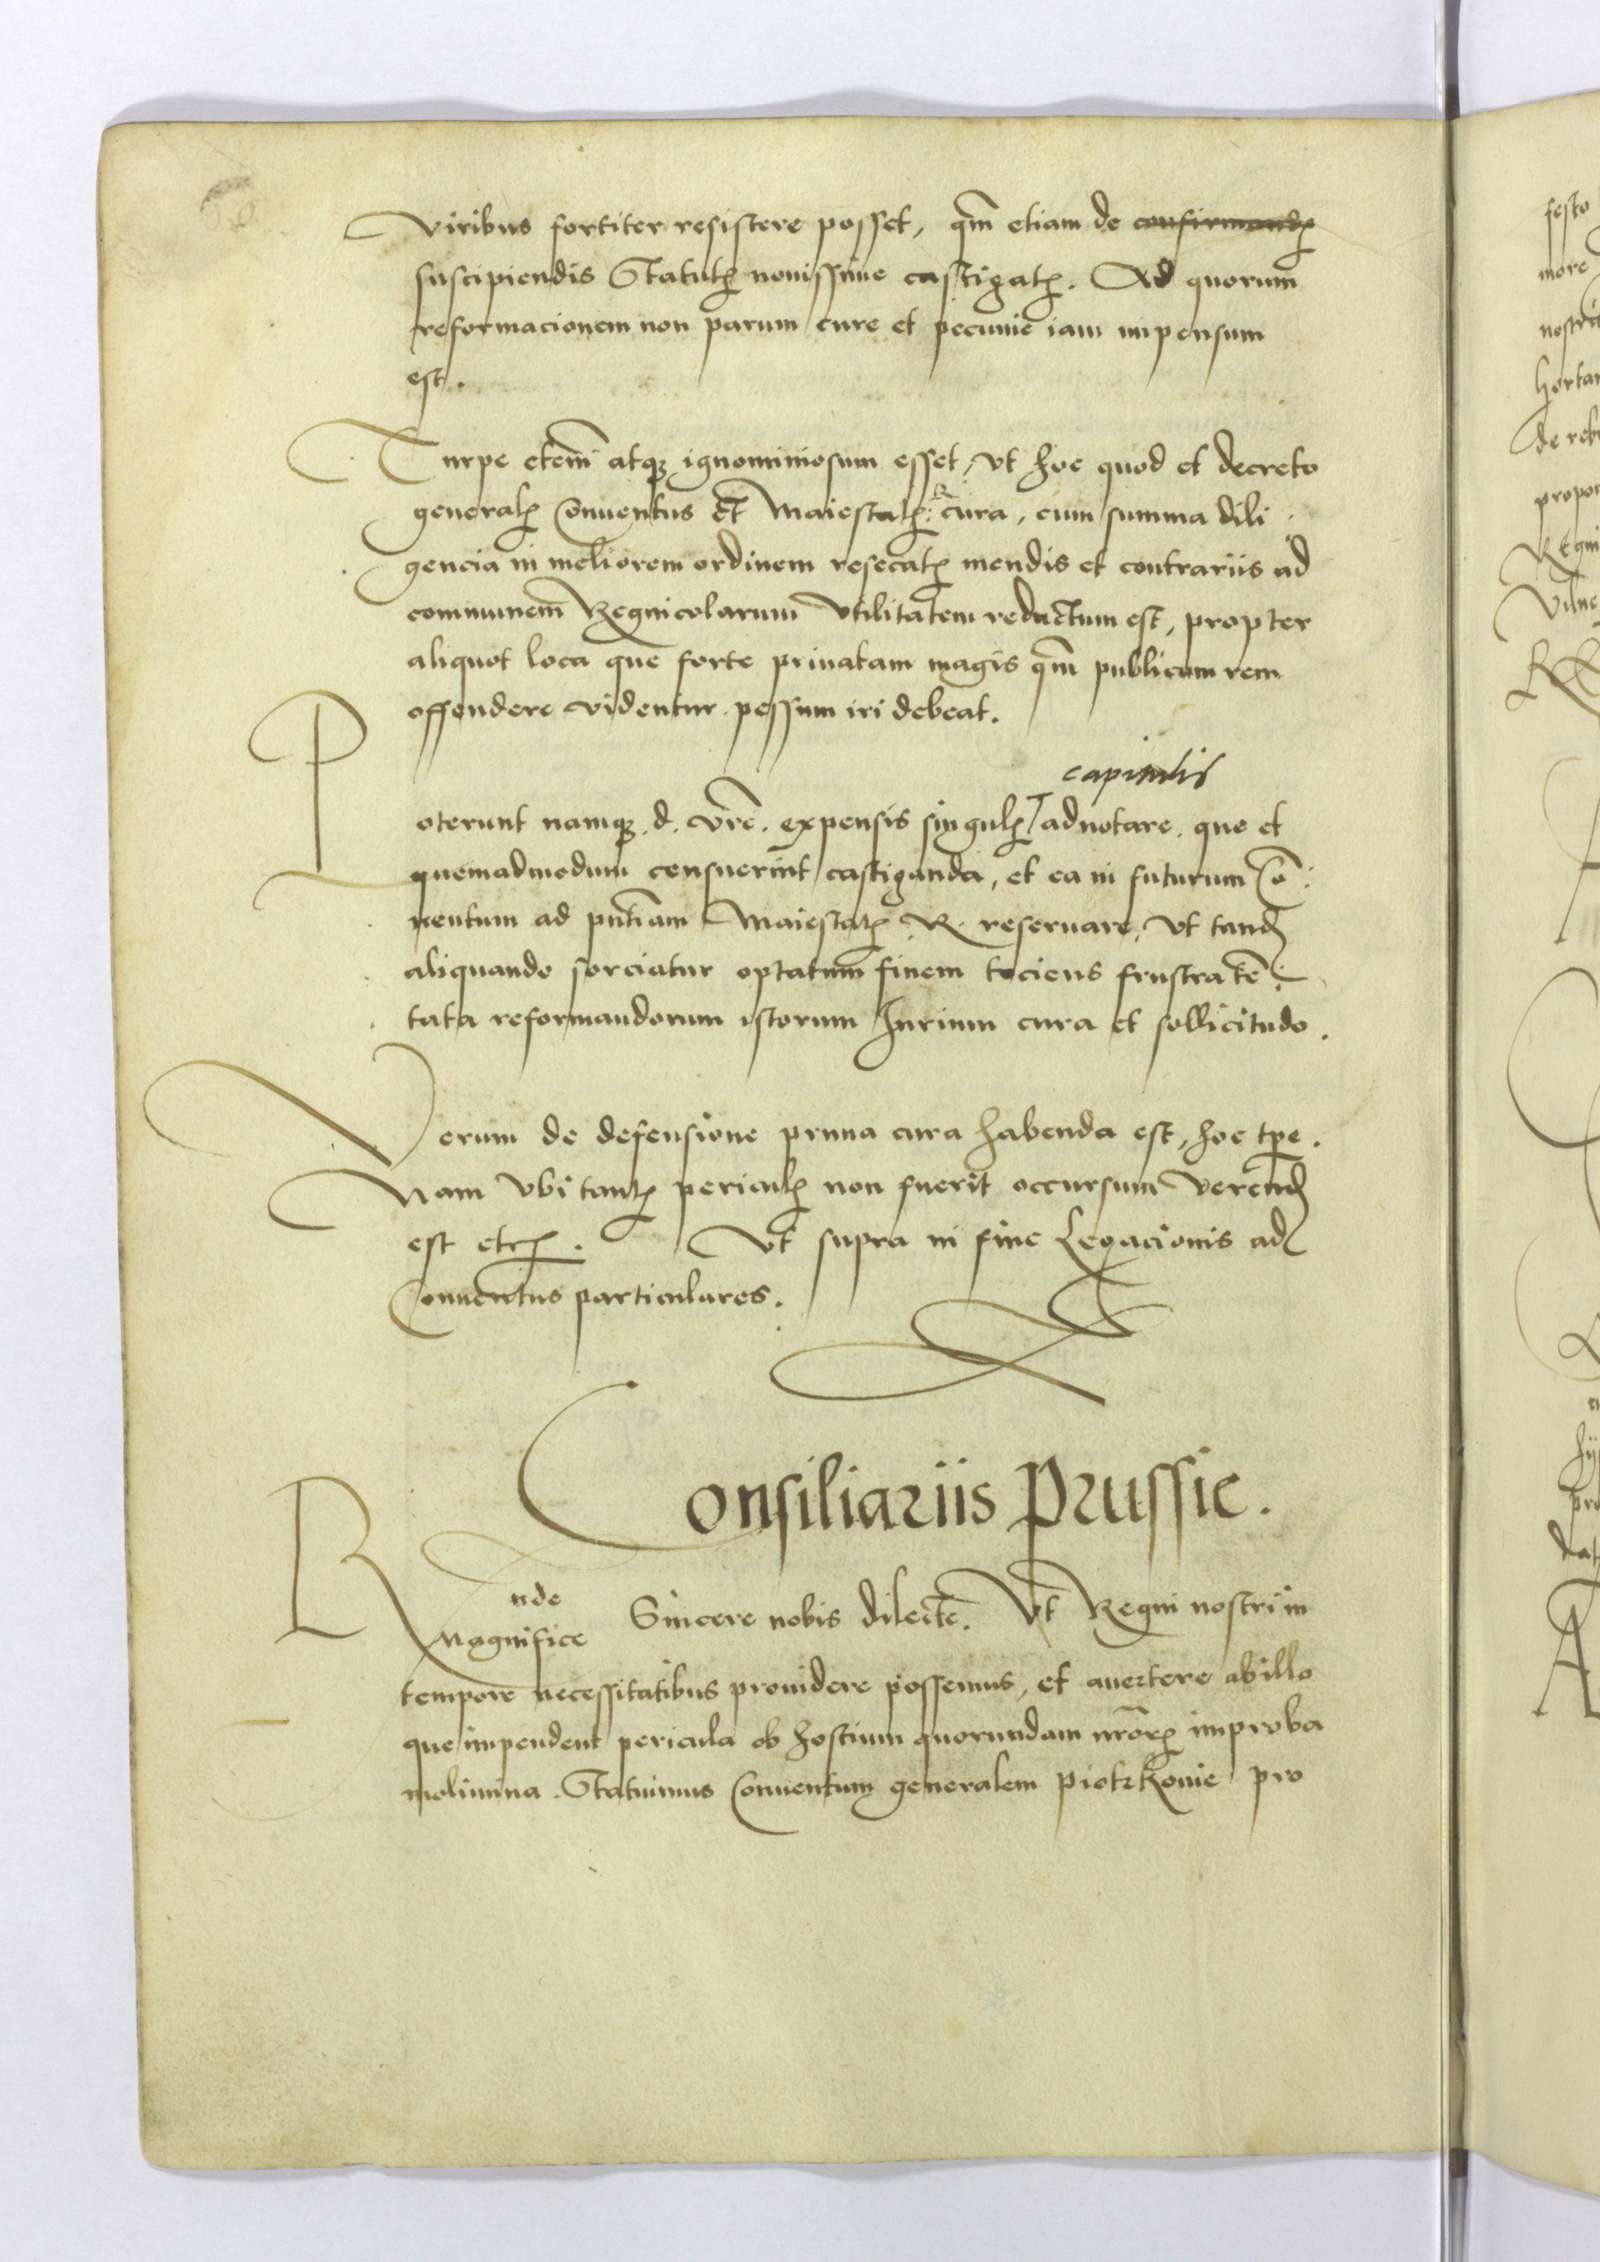 viribus fortiter resistere posset, qm̄ etiam de confirmandꝭ
suscipiendis Statutꝭ nouissime castigatꝭ. Ad quorum
reformacionem non parum cure et pecunie iam impensum
est.
Turpe etem̄ atqꝫ ignominiosum esset, vt hoc quod et decreto
generalꝭ Conuentus et Maiestatꝭ R cura, cum summa dili
gencia in meliorem ordinem resecatꝭ mendis et contrariis ad
communem Regnicolarum vtilitatem reductum est, propter
aliquot loca que forte priuatam magis qm̄ publicam rem
offendere videntur pessum iri debeat.
capitulis
Poterunt namqꝫ d. vrē. expensis singulꝭ adnotare. que et
quemadmodum censuerint castiganda, et ea in futurum Cō
uentum ad pntīam Maiestatꝭ R. reseruare, vt tandꝭ
aliquando sorciatur optatum finem tociens frustra tē
tata reformandorum istorum Iurium cura et sollicitudo.
Verum de defensione prima cura habenda est, hoc tpē.
Nam vbi tantꝭ periculꝭ non fuerit occursum verendꝭ
est etcꝭ. Vt supra in fine Legacionis ad
Conuentus particulares.
Consiliariis Prussie.
Rnde
Magnifice Sincere nobis dilecte. Vt Regni nostri in
tempore necessitatibus prouidere possemus, et auertere ab illo
que impendent pericula ob hostium quorundam nrōꝝ improba
molimina. Statuimus Conuentum generalem Piotrkouie pro